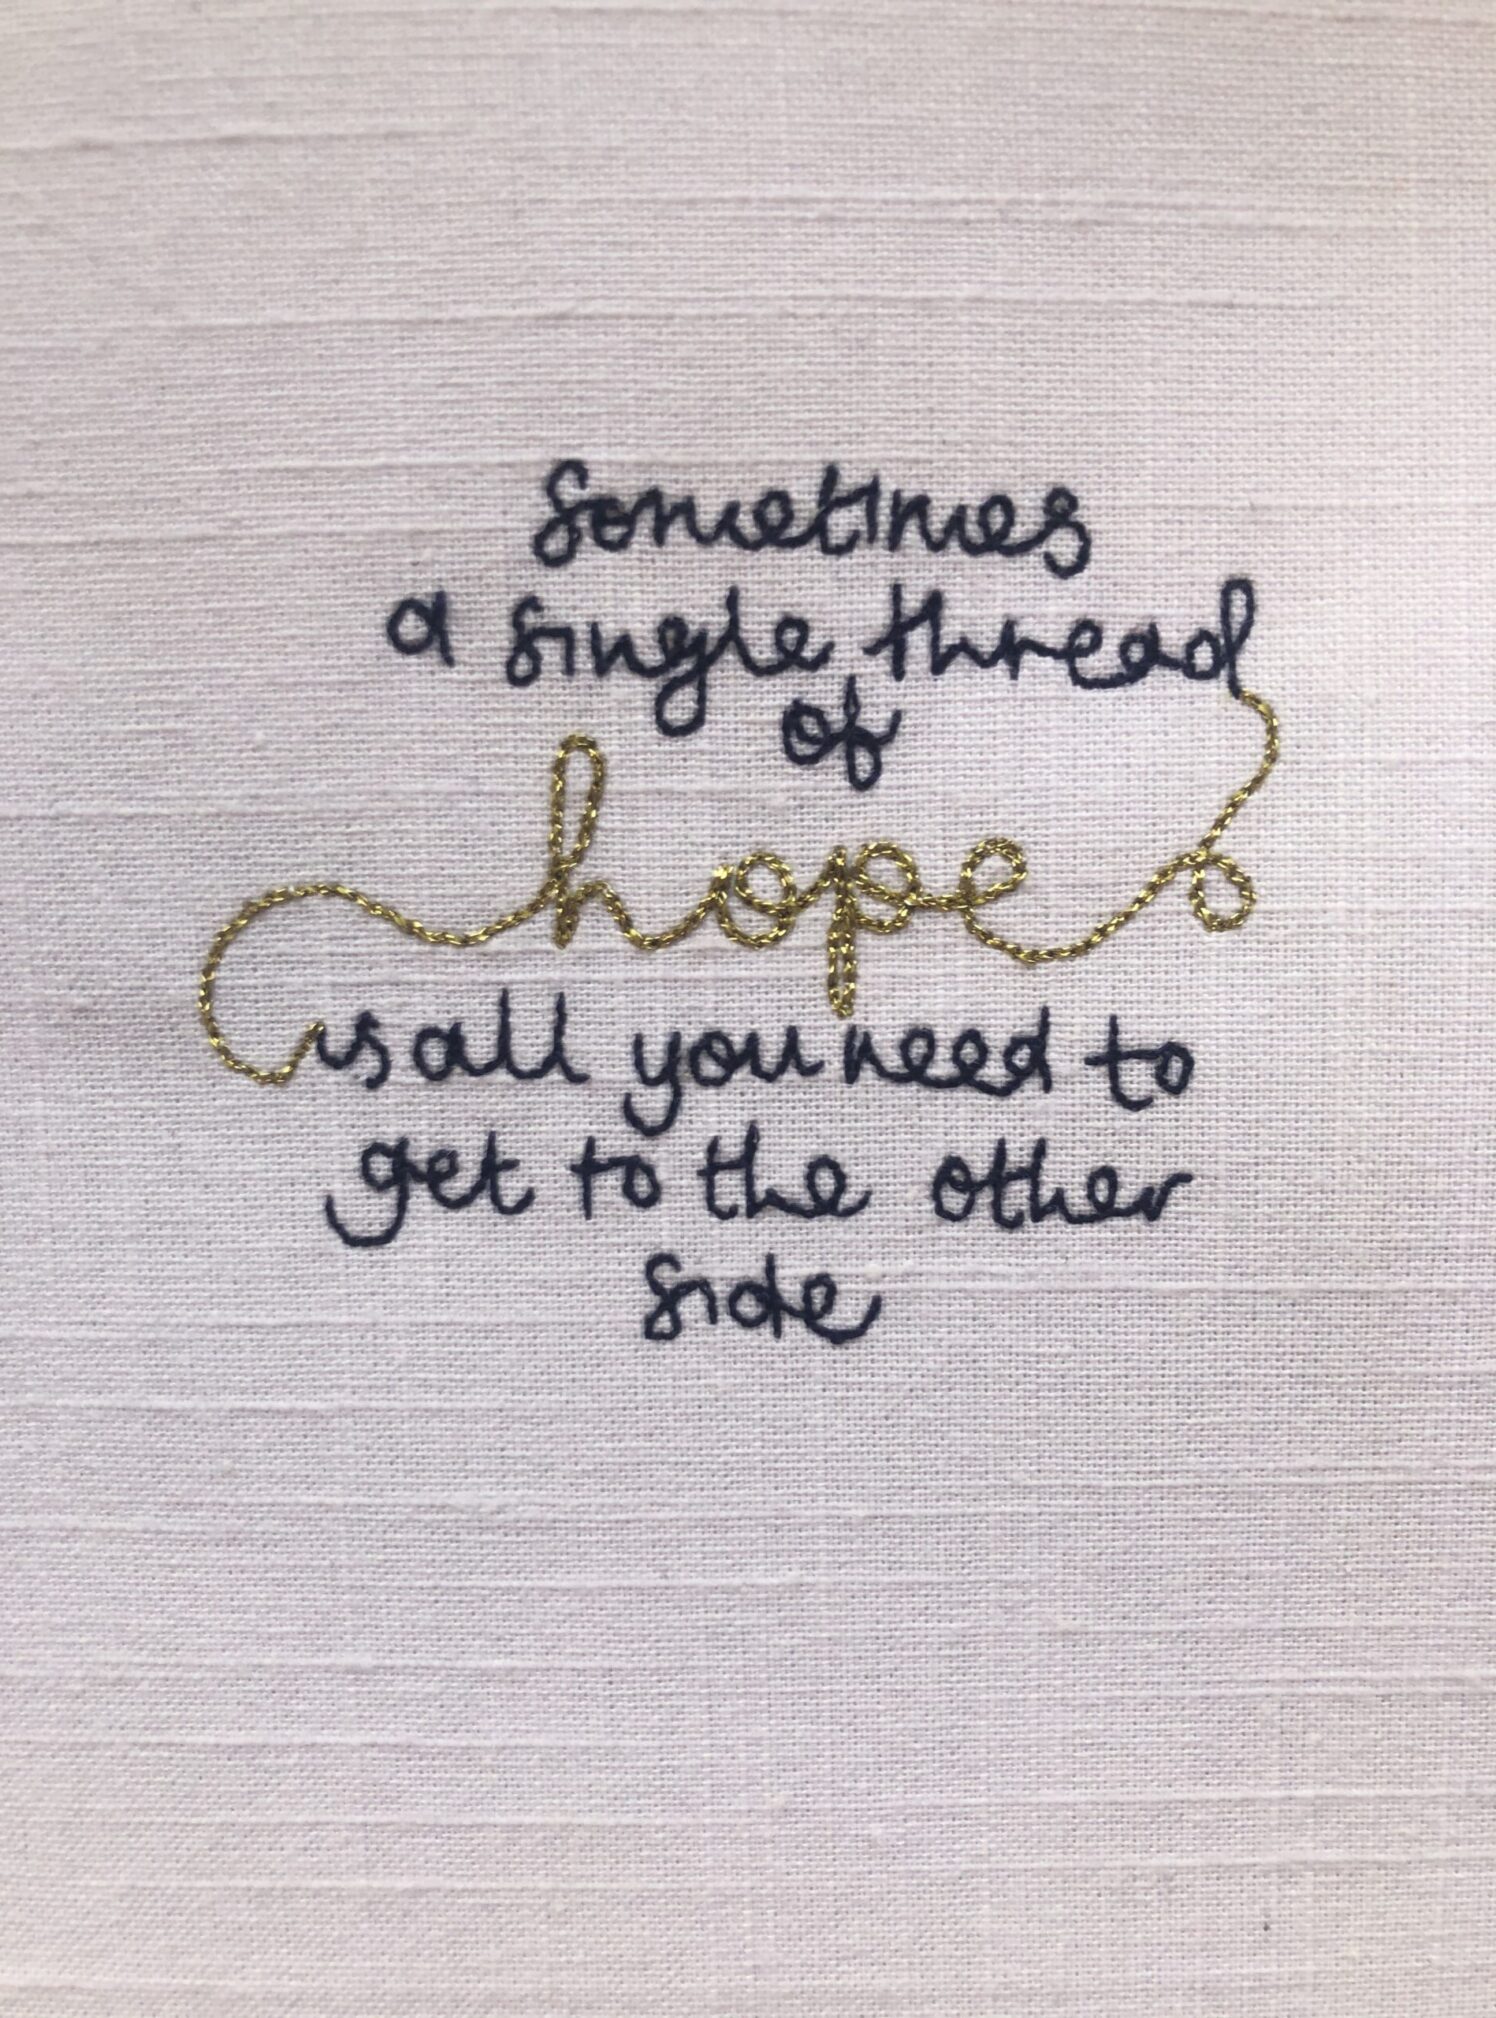 Sometimes
a single thread
of
hope
is all you need to
get to the other
side